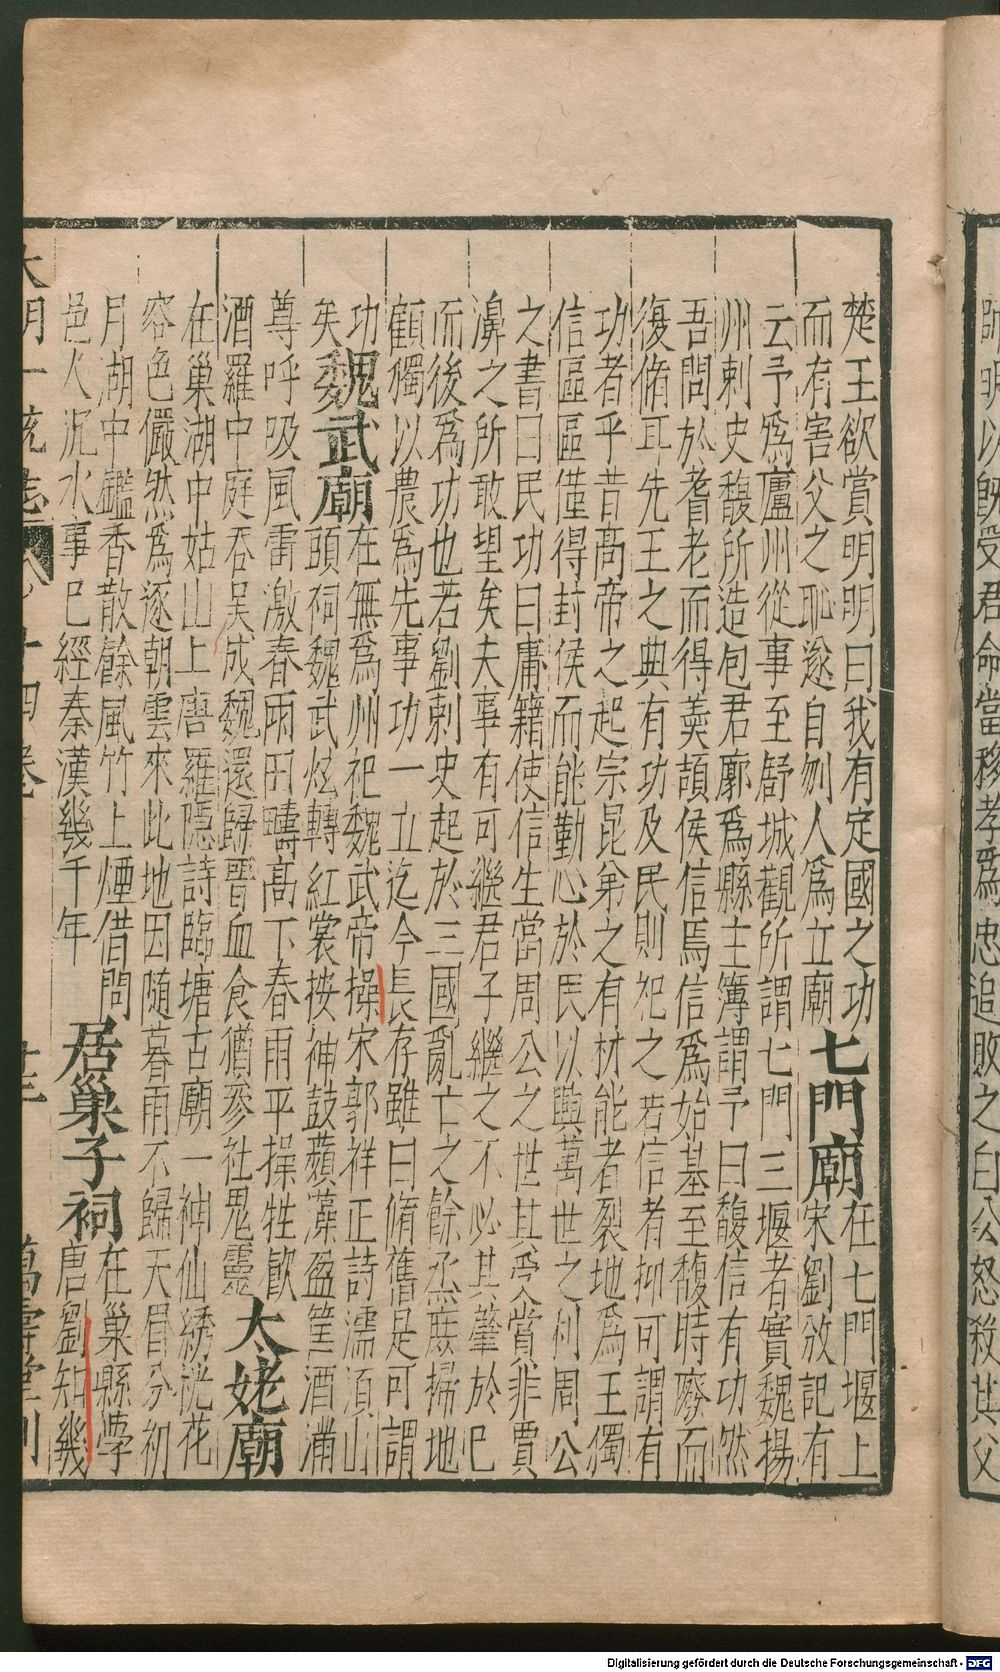 師明以既受君命當移孝爲忠追敗之白公怒殺其父
楚王欲賞明明曰我有定國之功
而有害父之恥遂自刎人爲立廟
七門廟
在七門堰上
宋劉攽記有
云予爲廬州從事至舒城觀所謂七門三堰者實魏揚
州刺史馥所造包君廓爲縣主簿謂予曰馥信有功然
吾問於耆老而得羹頡侯信焉信爲始基至馥時廢而
復脩耳先王之典有功及民則祀之若信者抑可謂有
功者乎昔高帝之起宗昆弟之有材能者裂地爲王獨
信區區僅得封侯而能勤心於民以興萬世之利周公
之書曰民功曰庸籍使信生當周公之世其受賞非賈
濞之所敢望矣夫事有可繼君子繼之不必其肇於已
而後爲功也若劉刺史起於三國亂亡之餘烝庶掃地
顧獨以農爲先事功一立迄今長存雖曰脩舊是可謂
功
矣
魏武廟
在無爲州祀魏武帝操宋郭祥正詩濡須山
頭祠魏武炫轉紅裳按神鼓蘋藻盈筐酒滿
尊呼吸風雷激春雨田疇高下春雨平操牲歃
酒羅中庭吞吳成魏還歸晉血食猶參社鬼靈
太姥廟
在巢湖中姑山上唐羅隱詩臨塘古廟一神仙綉幌花
容色儼然爲逐朝雲來此地因隨暮雨不歸天眉分初
月湖中鑑香散餘風竹上煙借問
邑人沉水事已經秦漢幾千年
居巢子祠
在巢縣學
唐劉知幾
大明一統志 十四卷 萬壽堂刊
Digitalisierung gefördert durch die Deutsche Forschungsgemeinschaft - DFG